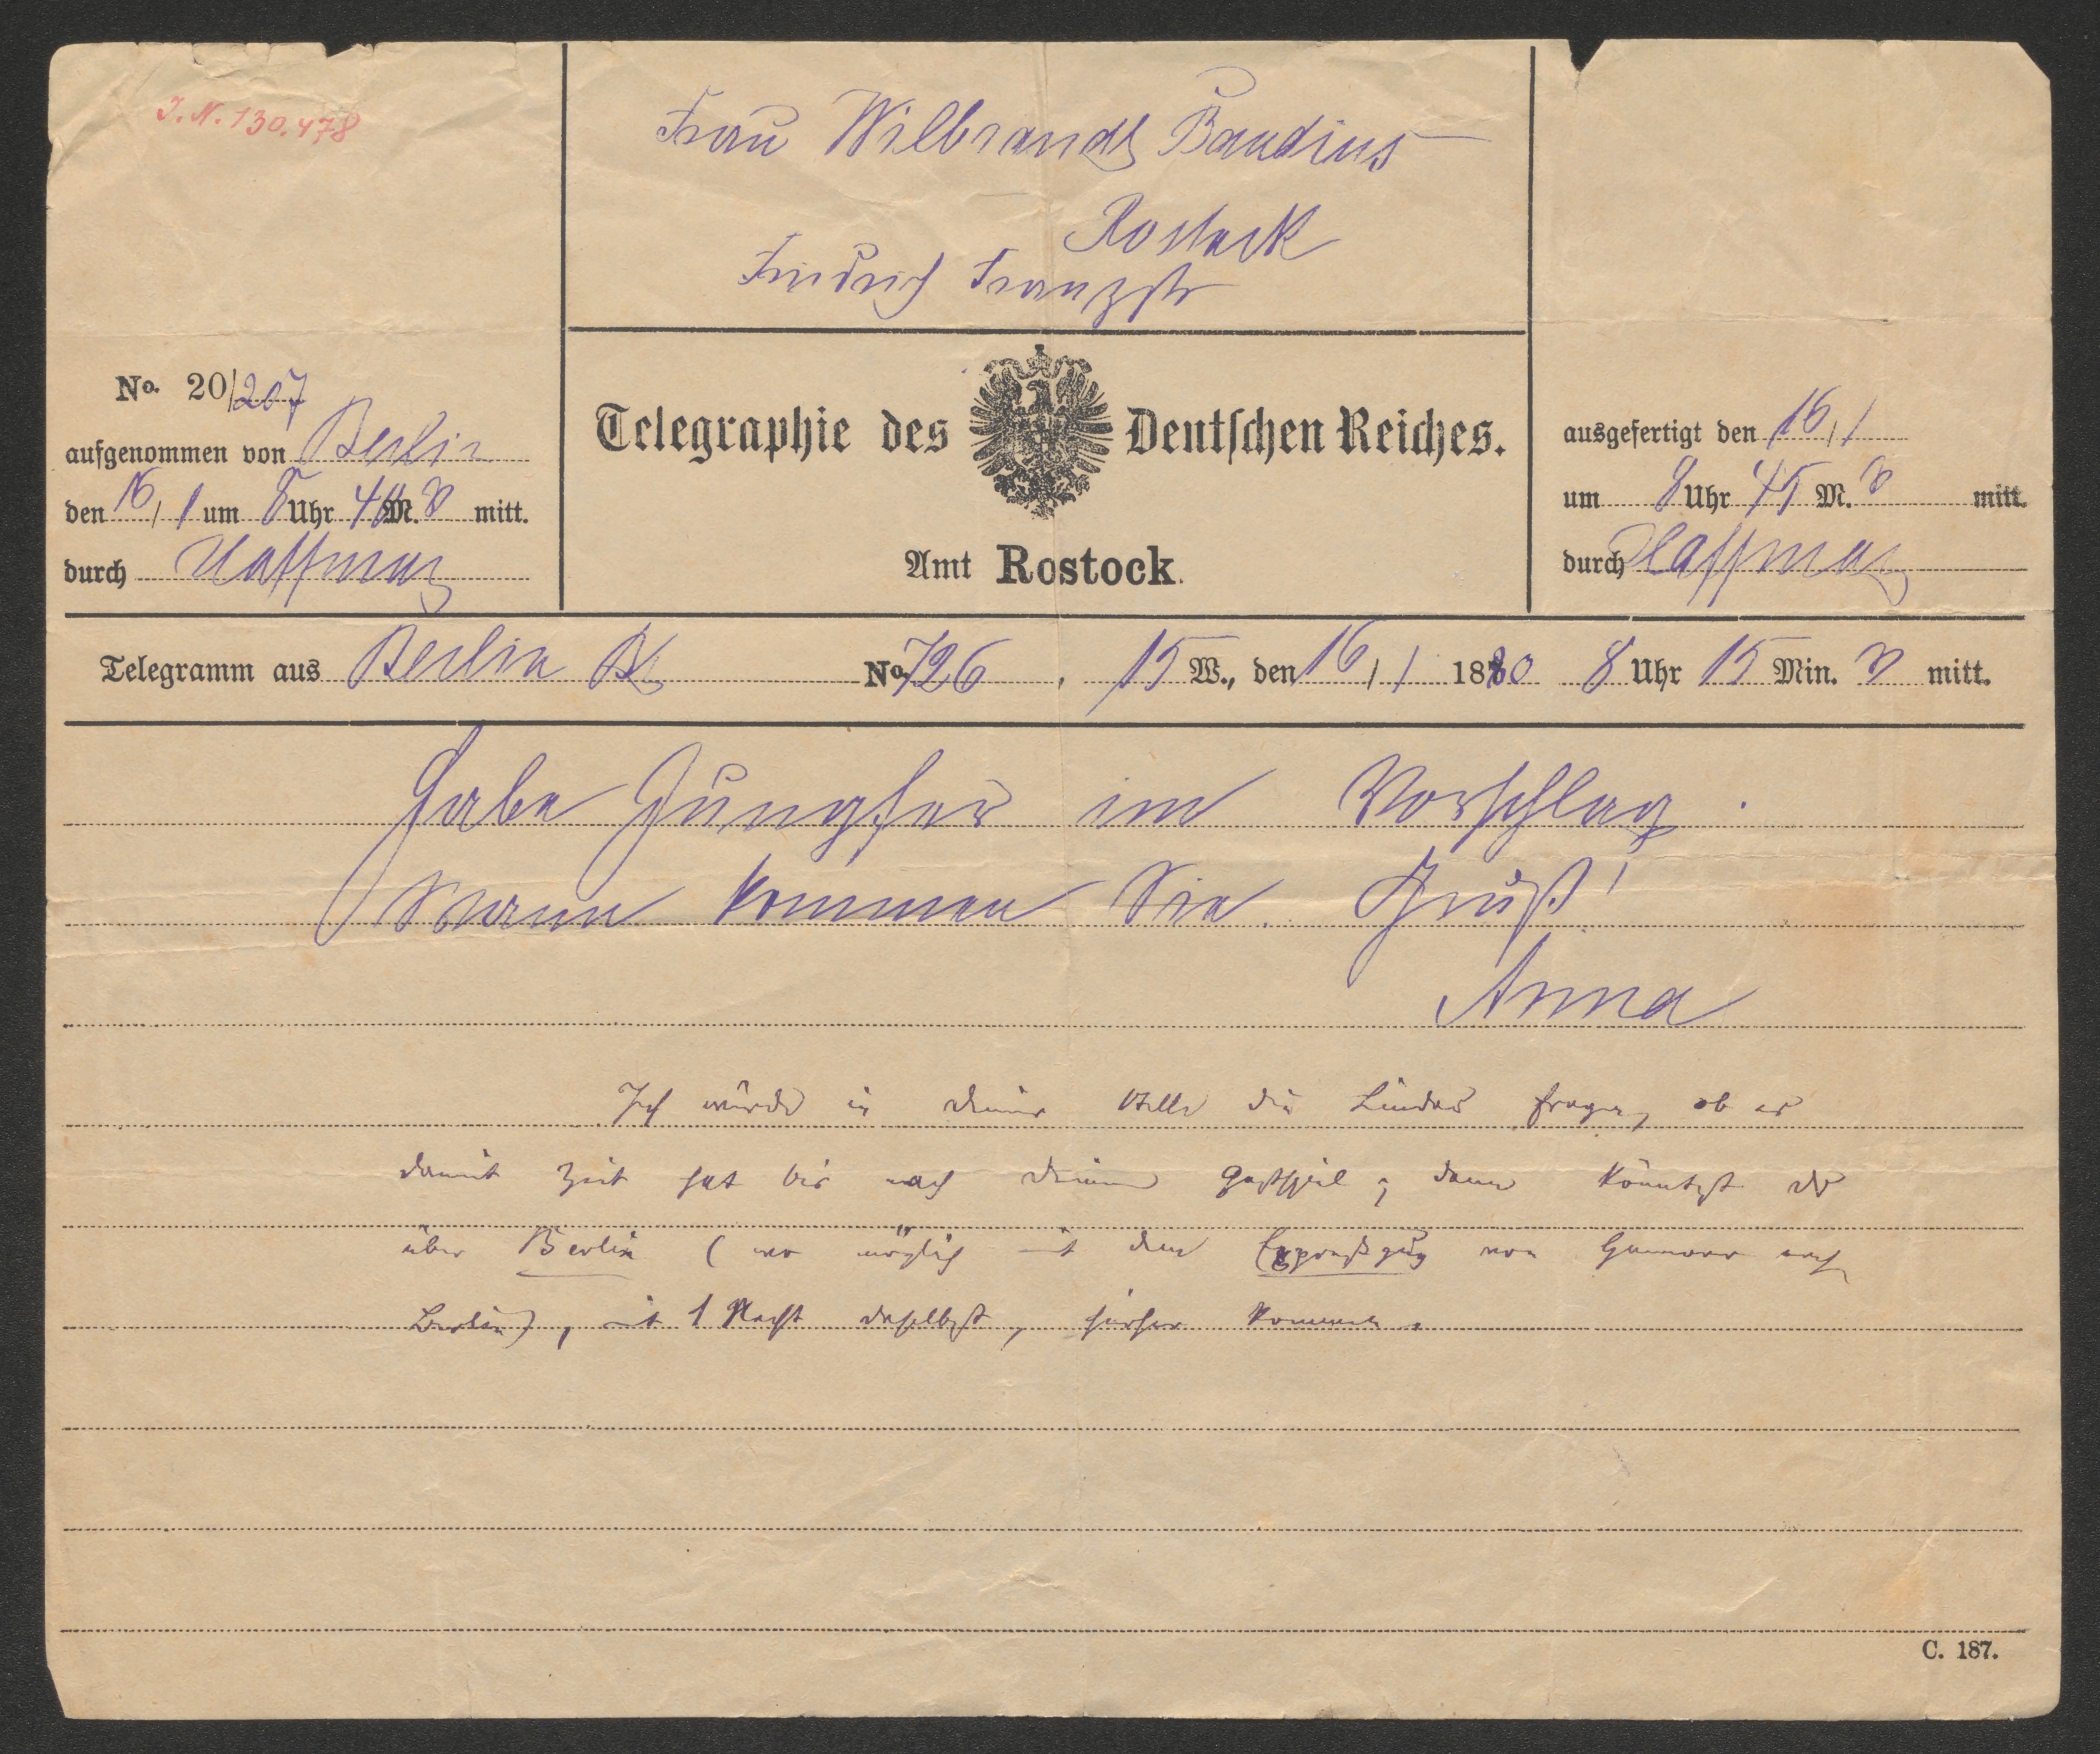 J. N. 130.478
Frau Wilbrandt Baudius
Rostock
Friedrich Franzstr
No. 20/207
aufgenommen von Berlin
den 16/1 um 8 Uhr 40 M. V mitt.
durch Haffman
Telegraphie des Deutschen Reiches.
Amt Rostock.
ausgefertigt den 16/1
um 8 Uhr 45 M. V mitt.
durch Haffman
Telegramm aus Berlin No 726, 15 W., den 16/1 1880 8 Uhr 15 Min. V mitt.
Habe Jungfer im Vorschlag.
Wann kommen Sie. Gruß!
Anna
Ich würde in deiner Stelle die Lindau fragen, ob es
damit Zeit hat bis nach deinem Gastspiel; dann könntest du
über Berlin (wo möglich mit dem Expreßzug von Hannover nach
Berlin), mit 1 Nacht daselbst, hierher kommen.
C. 187.